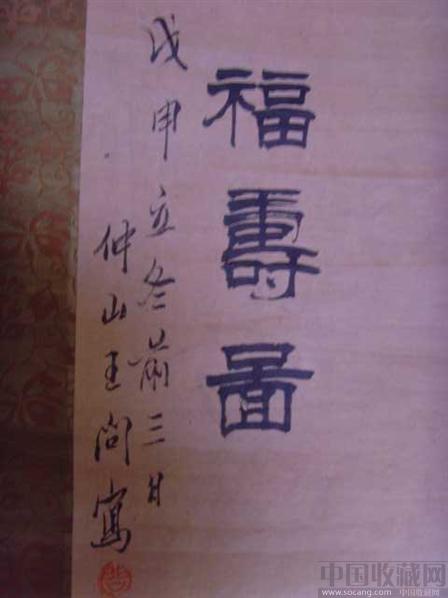 福壽圖
戊申立冬前三日
仲山王問寫
中国收藏网
www.socang.com 中国收藏网